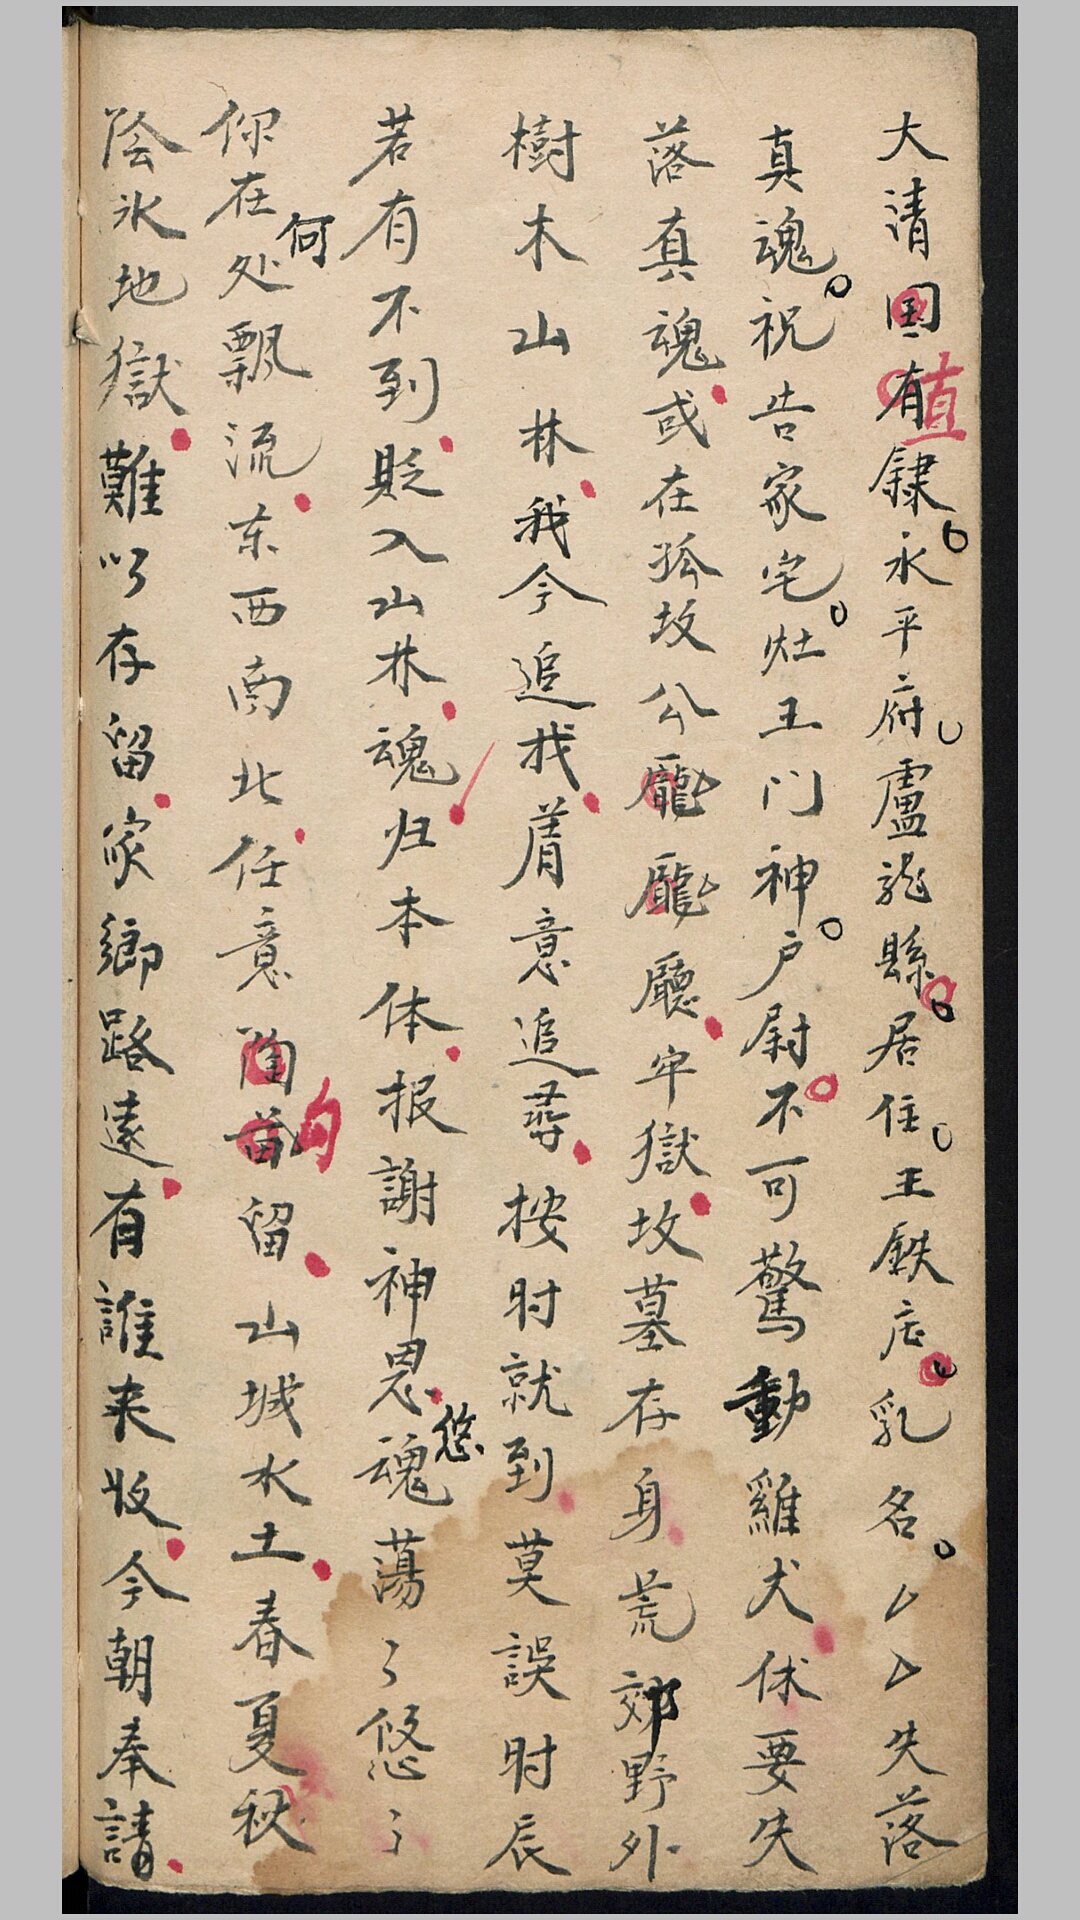 大清国有直隸永平府盧龍縣居住王鉄庄乳名厶厶失落
真魂祝告家宅灶王门神户尉不可驚動雞犬休要失
落真魂或在孤坟公廳牢獄坟墓存身荒郊野外
樹木山林我今追找着意追尋按时就到莫誤时辰
若有不到貶入山林魂归本体报謝神恩魂悠蕩了悠了
你在何处飘流东西南北任意留山城水土春夏秋
陰氷地獄難以存留家鄉路遠有誰来收今朝奉請